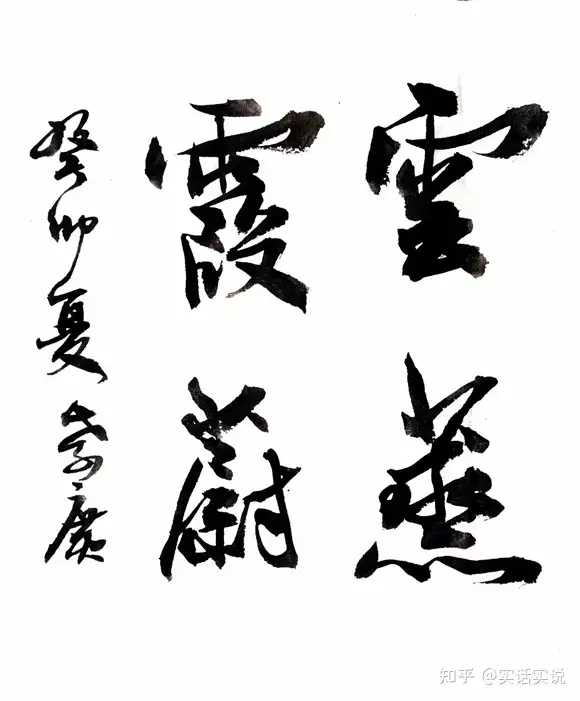 雲蒸
霞蔚
癸卯夏崇廣
知乎 @实话实说